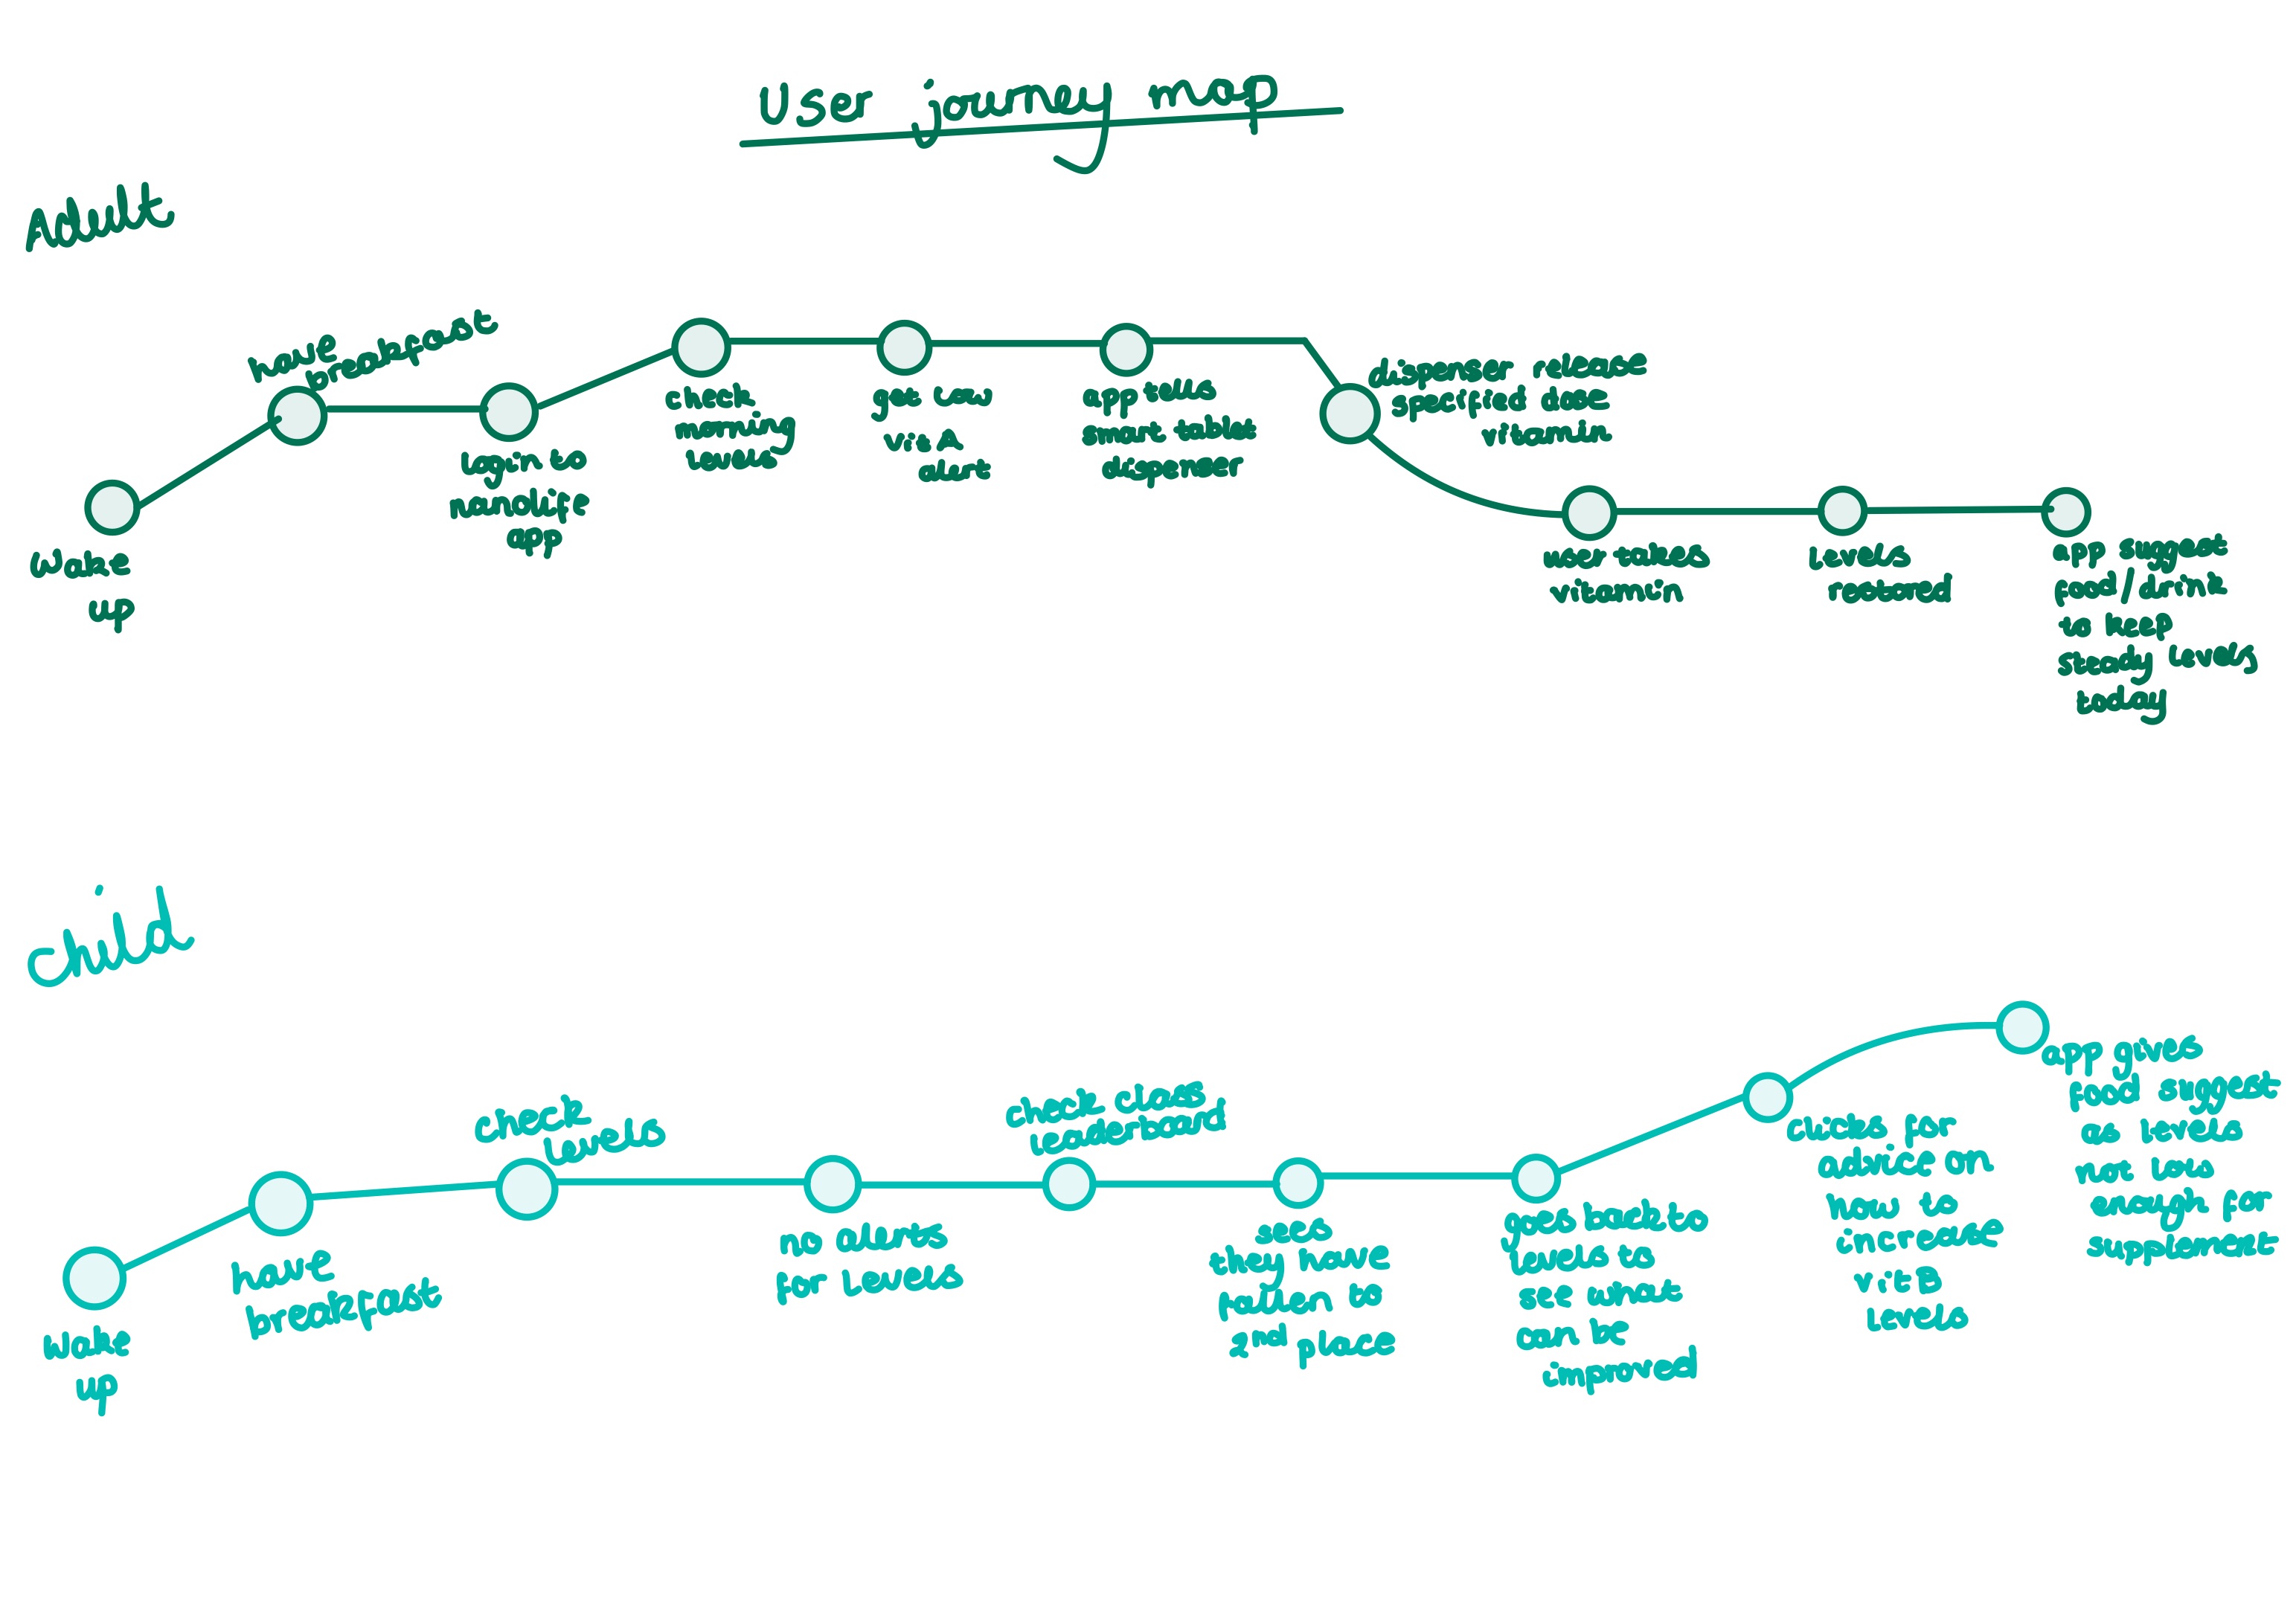 User journey map
Adult
wake
up
have
breakfast
login to
nanolife
app
check
morning
levels
get low
vit A
alert
app tells
smart tablet
dispenser
dispenser release
specified dose
vitamin
user takes
vitamin
levels
restored
app suggest
food/drink
to keep
steady levels
today
child
wake
up
have
breakfast
check
levels
no alerts
for levels
check class
leaderboard
sees
they have
fallen to
2nd place
goes back to
levels to
see what
can be
improved
clicks for
advice on
how to
increase
vit B
levels
app gives
food suggest
as levels
not low
enough for
supplement